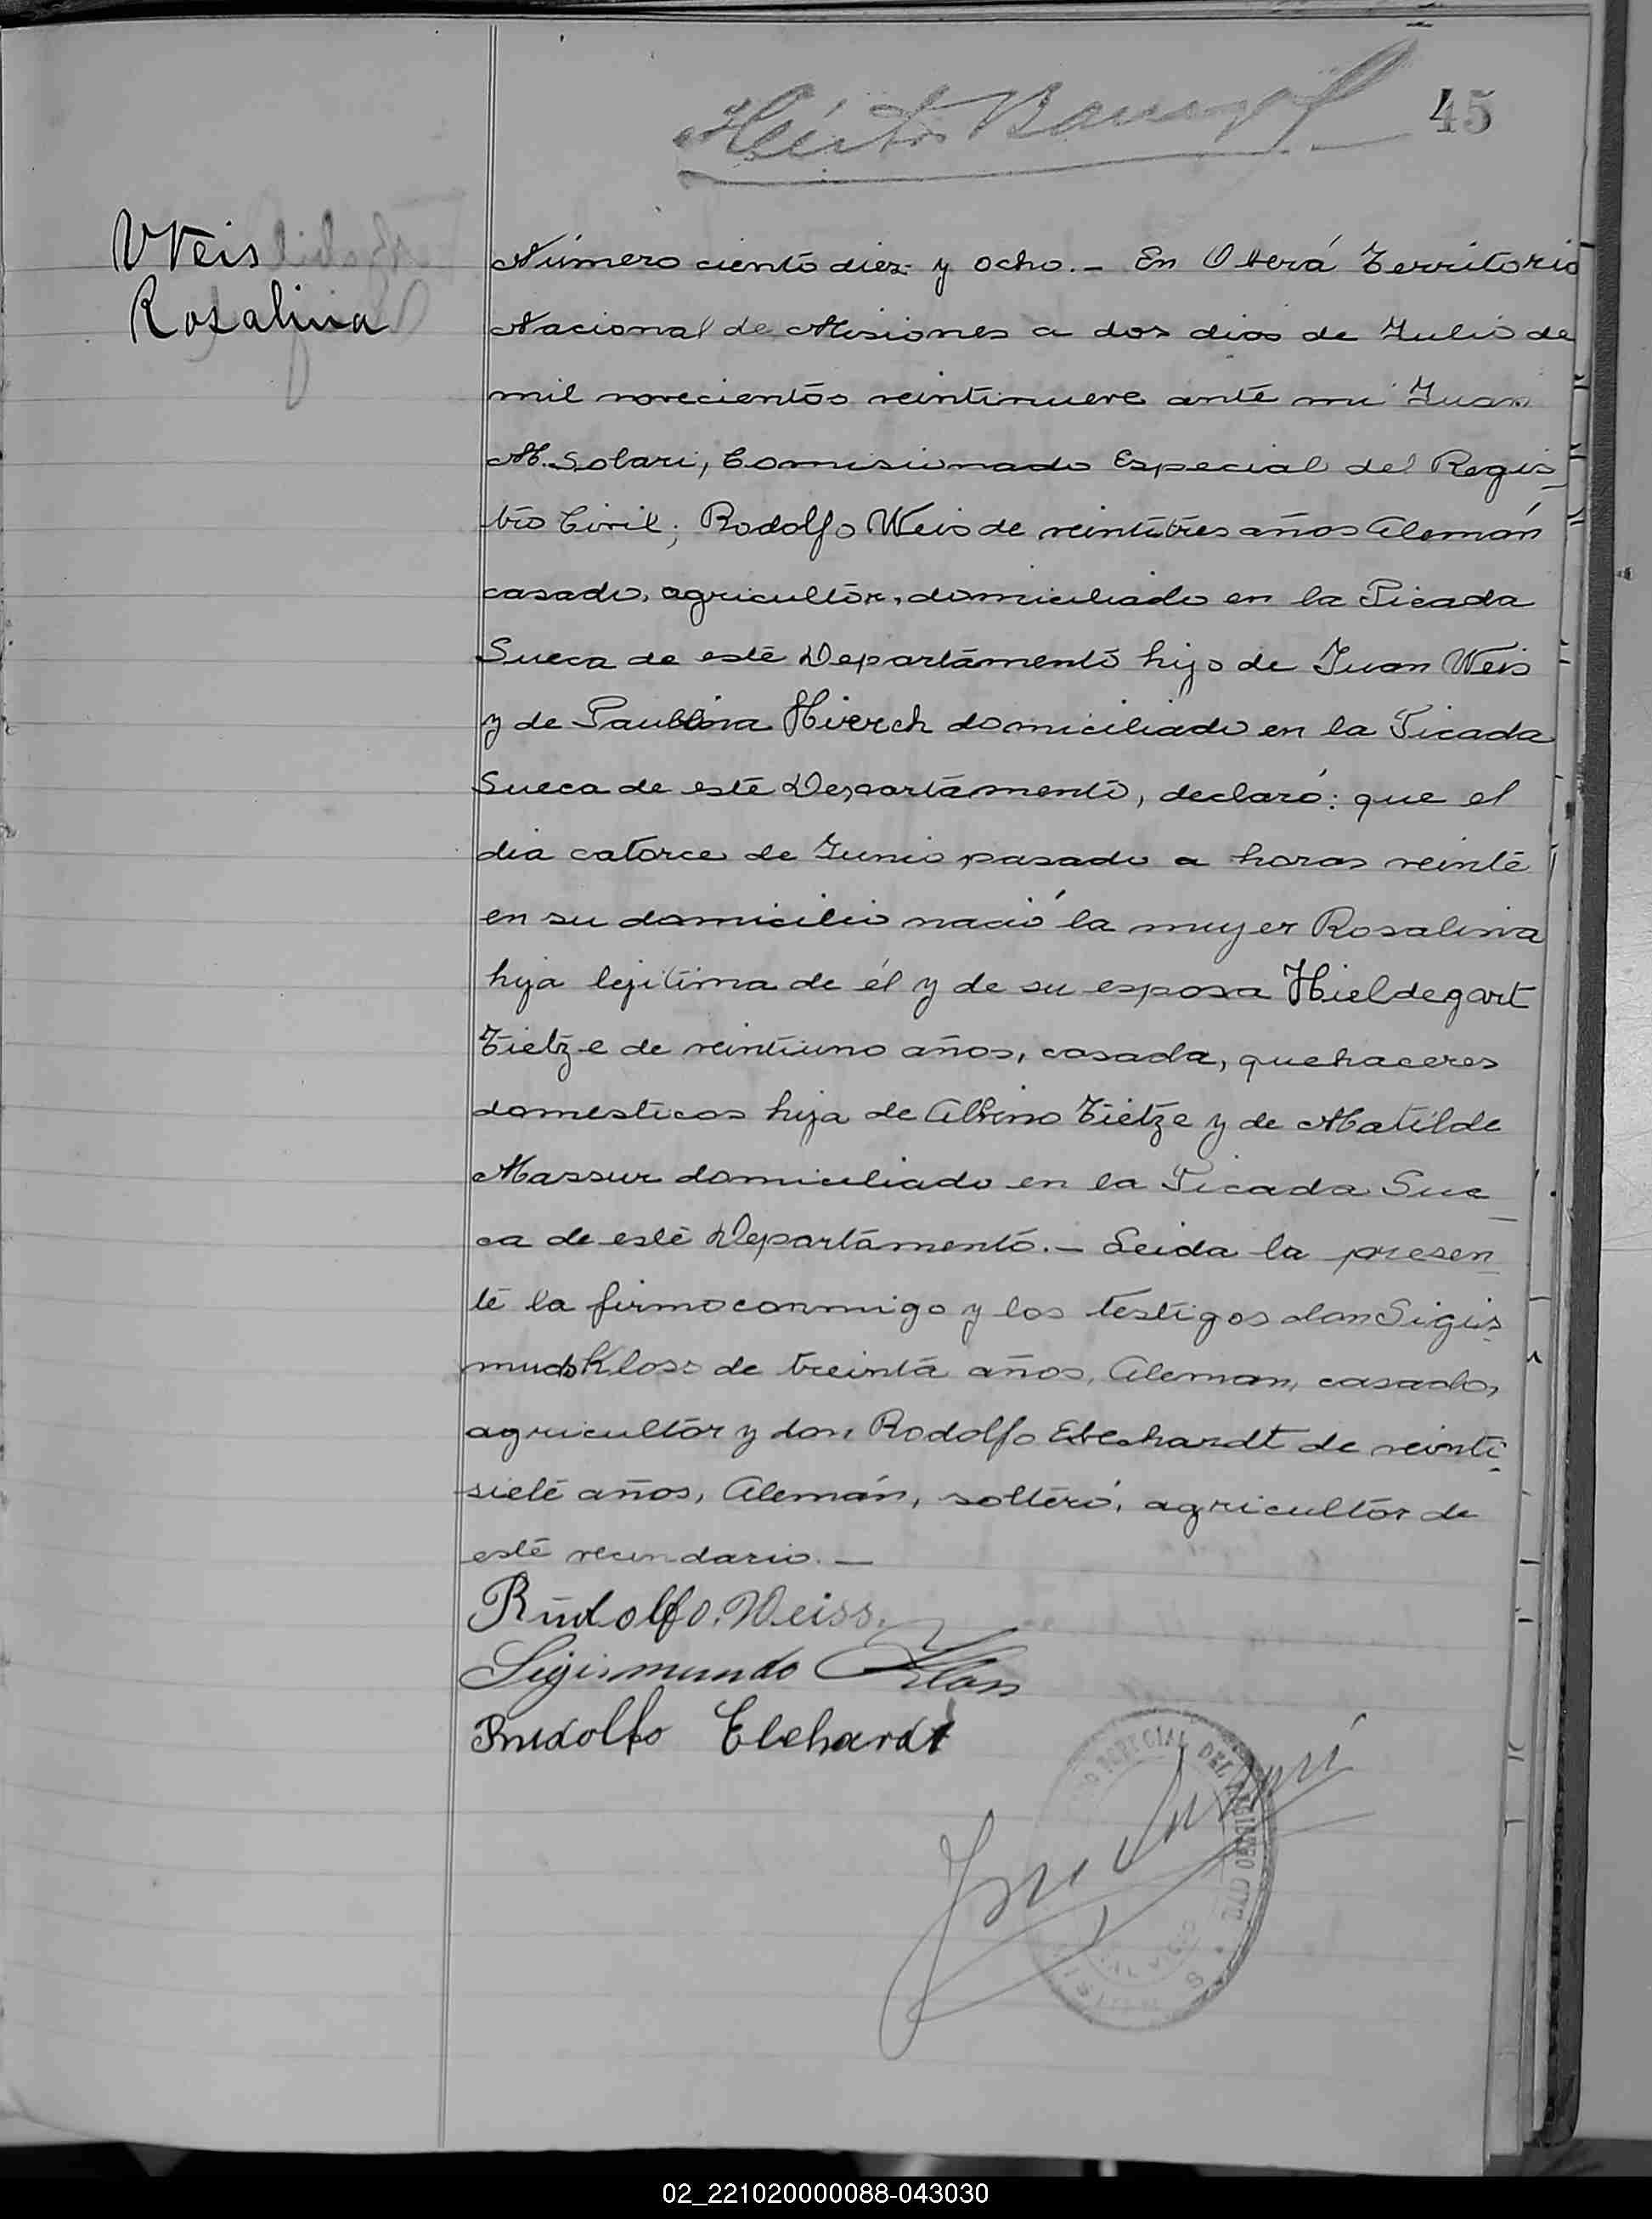 45
Weis
Rosalina
Número ciento diez y ocho.- En Oberá Territorio
Nacional de Misiones a dos dias de Julio de
mil novecientos veintinueve ante mi Juan
M. Solari, Comisionado Especial del Regis
tro Civil; Rodolfo Weis de veintitres años Alemán
casado, agricultor, domiciliado en la Picada
Sueca de este Departamento hijo de Juan Weis
y de Paublina Hierch domiciliado en la Picada
Sueca de este Departamento, declaró: que el
dia catorce de Junio pasado a horas veinte
en su domicilio nació la mujer Rosalina
hija lejitima de él y de su esposa Hieldegart
Tietze de veintiuno años, casada, quehaceres
domesticos hija de Albino Tietze y de Matilde
Massur domiciliado en la Picada Sue
ca de este Departamento.- Leida la presen
te la firmo conmigo y los testigos don Sigis
mudo Kloss de treinta años, Aleman, casado,
agricultor y don Rodolfo Ebehardt de veinti
siete años, Alemán, soltero, agricultor de
este vecindario.-
Rudolfo. Weiss.
Sigismundo Kloss
Rudolfo Ebehardt
ESPECIAL DEL REGISTRO CIVIL
02_221020000088-043030